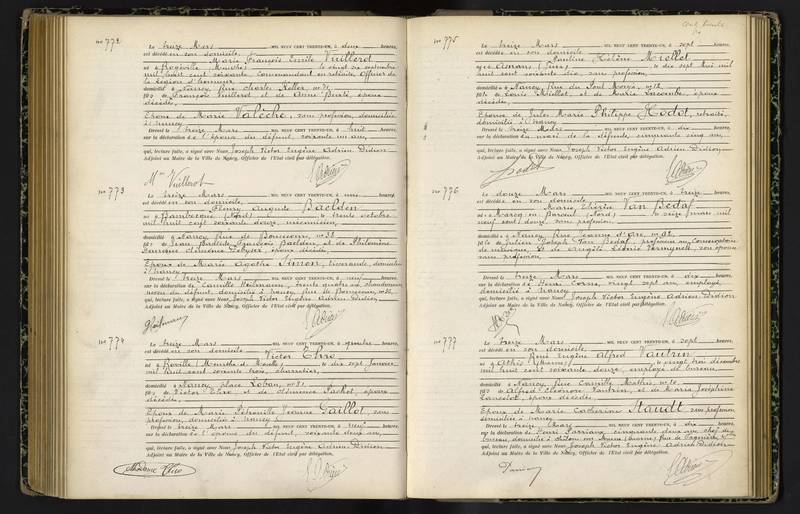 No 772
Le treize Mars MIL NEUF CENT TRENTE-UN, à deux heures,
est décédé en son domicile
Marie François Emile Vuillerot
né à Rogéville Meurthe le vingt six septembre
mil huit cent soixante Commandant en retraite, Officier de
la Légion d'Honneur
domicilié à Nancy, Rue Charles Keller, no 31,
fils de François Vuillerot et de Anne époux
décédés,
Epoux de Marie Valèche, sans profession, domiciliée
à Nancy
Dressé le treize Mars MIL NEUF CENT TRENTE-UN, à huit heures,
sur la déclaration de l'épouse du défunt, soixante un ans,
qui, lecture faite, a signé avec Nous, Joseph Victor Eugène Adrien Didion
Adjoint au Maire de la Ville de Nancy, Officier de l'Etat civil par délégation.
Mme Vuillerot
No 773
Le treize Mars MIL NEUF CENT TRENTE-UN, à onze heures,
est décédé en son domicile
Fleury Auguste Baelden
né à Bambecque (Nord) le trente octobre
mil huit cent soixante douze, mécanicien,
domicilié à Nancy, Rue de Bonsecours, no 38
fils de Jean Baptiste François Baelden, et de Philomène
époux décédés,
Epoux de Marie Agathe Simon, survivante domiciliée
à Nancy
Dressé le treize Mars MIL NEUF CENT TRENTE-UN, à neuf heures,
sur la déclaration de Camille Heilmann, trente quatre ans,
neveu du défunt, domicilié à Nancy, Rue de Bonsecours, no 32,
qui, lecture faite, a signé avec Nous, Joseph Victor Eugène Adrien Didion
Adjoint au Maire de la Ville de Nancy, Officier de l'Etat civil par délégation.
No 774
Le treize Mars MIL NEUF CENT TRENTE-UN, à quatre heures,
est décédé en son domicile
Victor Thro
né à Roville (Meurthe et Moselle) le dix sept Janvier
mil huit cent soixante trois,
domicilié à Nancy, place Loban, no 21
fils de Victor Thro et de Clémence Pachot, époux
décédés,
Epoux de Marie Pétronille Jeanne Gaillot, sans
profession, domiciliée à Nancy
Dressé le treize Mars MIL NEUF CENT TRENTE-UN, à neuf heures,
sur la déclaration de l'épouse du défunt, soixante deux ans,
qui, lecture faite, a signé avec Nous, Joseph Victor Eugène Adrien Didion
Adjoint au Maire de la Ville de Nancy, Officier de l'Etat civil par délégation.
Madame Thro
No 775
Le treize Mars MIL NEUF CENT TRENTE-UN, à sept heures,
est décédée en son domicile
Pauline Hélène Miellet
née à (Jura) le dix sept Mai mil
huit cent soixante dix, sans profession,
domiciliée à Nancy, Rue du Pont Mouja, no 12,
fille de Louis Miellet, et de Marie Lacombe, époux
décédés,
Epouse de Jules Marie Philippe Hodot, retraité,
domicilié à Nancy
Dressé le treize Mars MIL NEUF CENT TRENTE-UN, à dix heures,
sur la déclaration de mari de la défunte, cinquante cinq ans,
qui, lecture faite, a signé avec Nous, Joseph Victor Eugène Adrien Didion
Adjoint au Maire de la Ville de Nancy, Officier de l'Etat civil par délégation.
Hodot
No 776
Le douze Mars MIL NEUF CENT TRENTE-UN, à treize heures,
est décédée en son domicile
Marie Thérèse Van Bedaf
née à Marcq en Baroeul (Nord) le seize mars mil
neuf cent douze, sans profession,
domiciliée à Nancy, Rue Jeanne d'Arc, no 82,
fille de Julien Joseph Van Bedaf, professeur au Conservatoire
de musique, et de Angèle Léonie son épouse
sans profession,
Dressé le treize Mars MIL NEUF CENT TRENTE-UN, à dix heures,
sur la déclaration de Henri Corne, vingt sept ans, employé,
domicilié à Nancy
qui, lecture faite, a signé avec Nous, Joseph Victor Eugène Adrien Didion
Adjoint au Maire de la Ville de Nancy, Officier de l'Etat civil par délégation.
No 777
Le treize Mars MIL NEUF CENT TRENTE-UN, à sept heures,
est décédé en son domicile
René Eugène Alfred Vautrin
né à Athis le vingt trois décembre
mil huit cent soixante douze, employé de bureau,
domicilié à Nancy, Rue Camille Mathis, no 10,
fils de Alfred Eléonore Vautrin, et de Marie Joséphine
Lancelot, époux décédés,
Epoux de Marie Catherine Staudt sans profession
domiciliée à Nancy
Dressé le treize Mars MIL NEUF CENT TRENTE-UN, à dix heures,
sur la déclaration de Henri cinquante deux ans, chef de
bureau, domicilié à Châlons sur Marne (Marne)
qui, lecture faite, a signé avec Nous, Joseph Victor Eugène Adrien Didion
Adjoint au Maire de la Ville de Nancy, Officier de l'Etat civil par délégation.